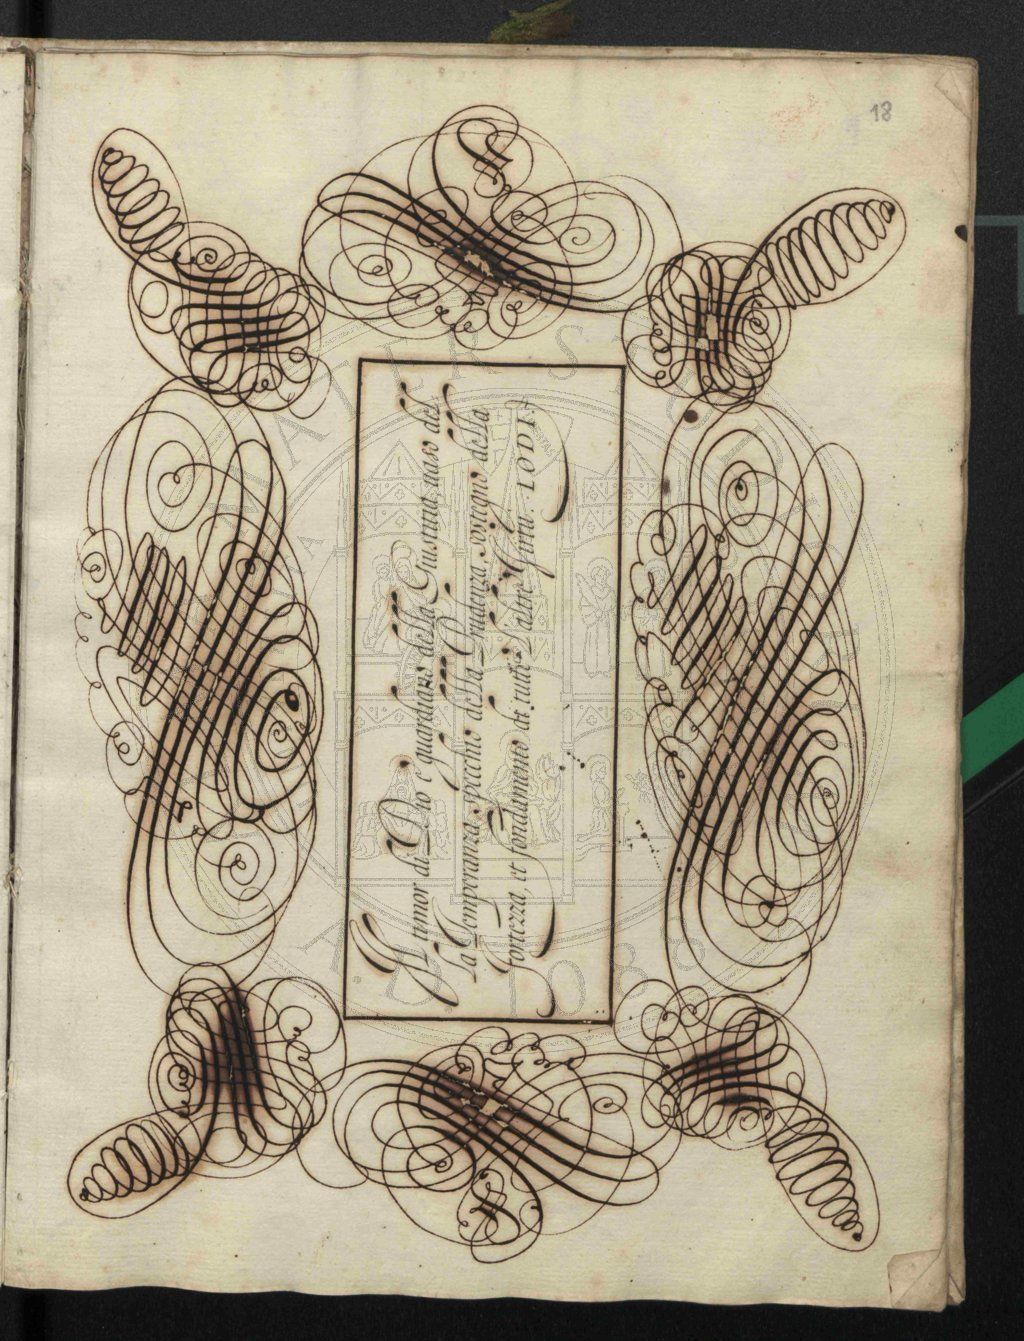 18
Il timor di Dio è guardiano della Giustitia, naso del
la Temperanza, specchio della Prudenza, sostegno della
Fortezza, et fondamento di tutte l'altre Virtù. LODI.